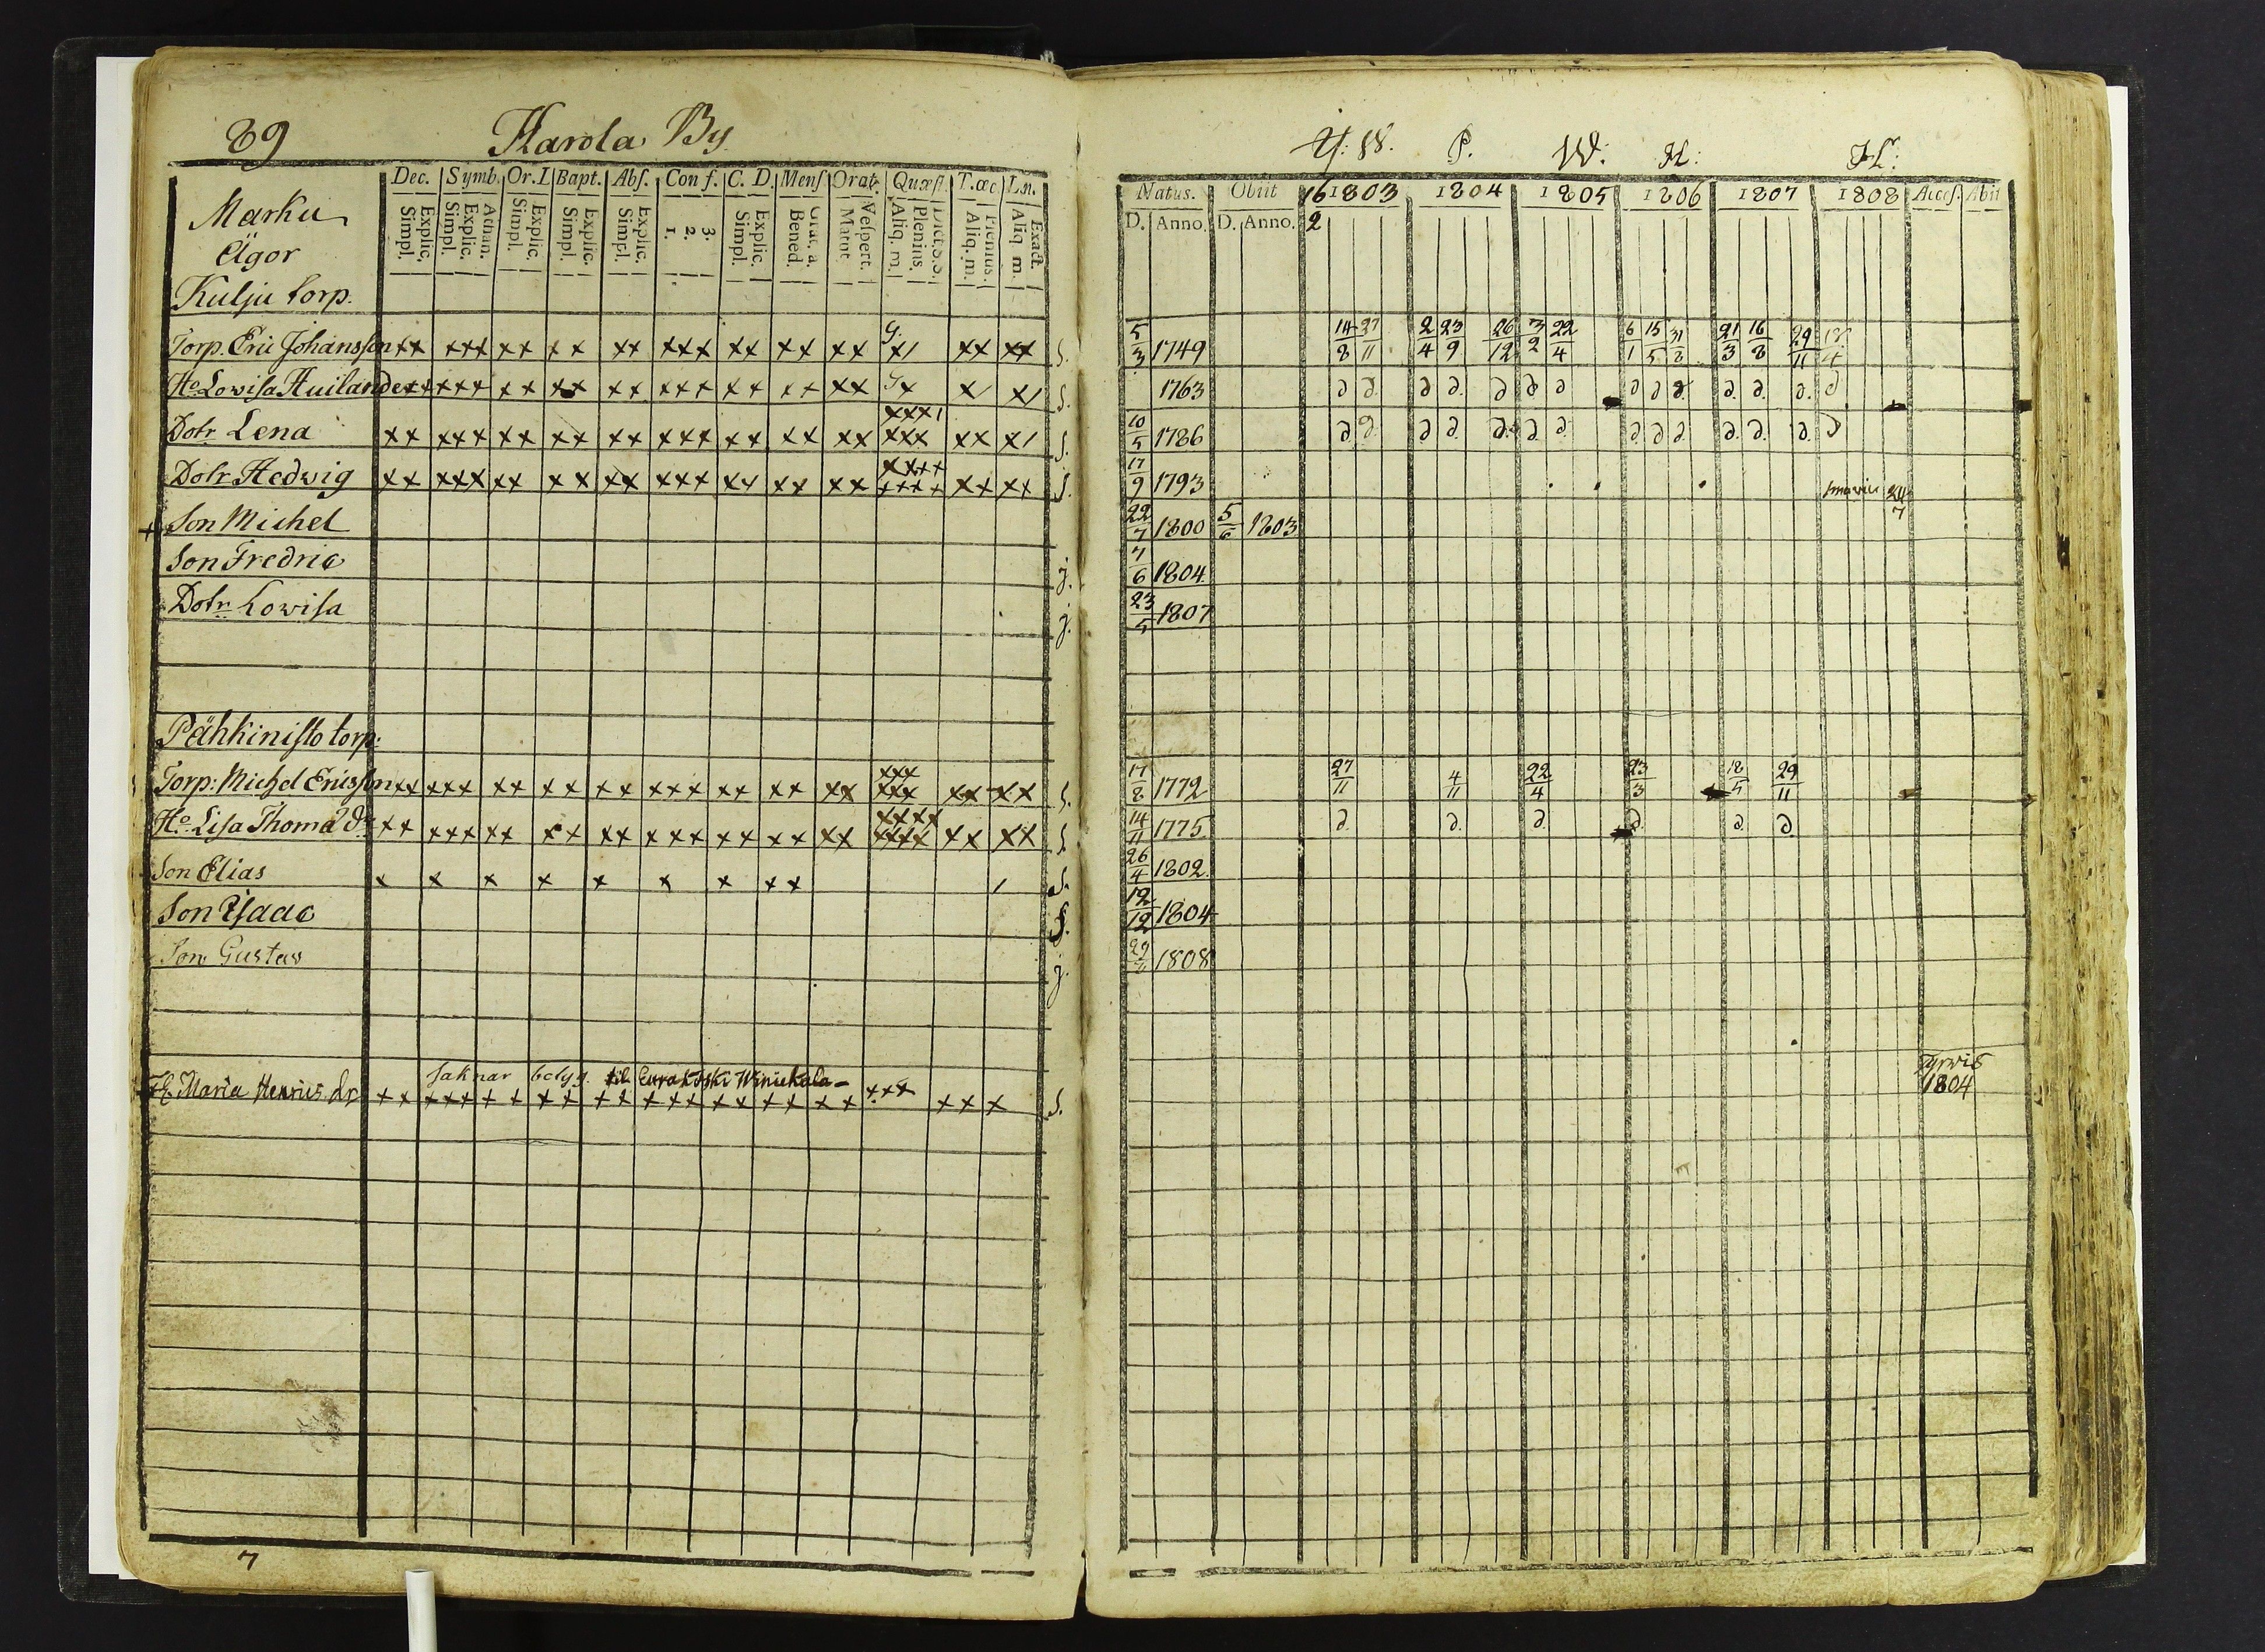 89 Harola By
Dec. Symb. Or.D Bapt. Abſ. Conf. C. D. Menſ Orat. Quæſt. T.œc L.n.
Explic. Simpl. Athan. Explic. Simpl. Explic. Simpl. Explic. Simpl. Explic. Simpl. 3. 2. 1. Explic. Simpl. Grat. a. Bened. Veſpert. Matut. Dict.S.S. Plenius. Aliq. m. Plenius. Aliq. m. Exact. Aliq m.
Marku
Ägor
Kulju torp.
Torp. Eric Johansson xx xxx xx xx xx xxx xx xx xx g. x/ xx xx S.
Ho Lowisa Huilander xx xxx xx xx xx xxx xx xx xx g x x x/ S.
Dotr Lena xx xxx xx xx xx xxx xx xx xx xxx/ xxx xx x/ S.
Dotr Hedwig xx xxx xx xx xx xxx xx xx xx xxxx xxxx xx xx S.
+ Son Michel
Son Fredric j.
Dotr Lowisa j.
Pähkinisto torp:
Torp: Michel Ericsson xx xxx xx xx xx xxx xx xx xx xxx xxx xx xx S.
Ho Lisa Thomæ dr xx xxx xx xx xx xxx xx xx xx xxxx xxxx xx xx S
Son Elias x x x x x x x xx / S.
Son Isaac S.
Son Gustav j.
saknar betyg. til Eurakoski Winikala-
Maria Henrics dr xx xxx xx xx xx xxx xx xx xx xxx xx x S.
7
P. W: H:
Natus. Obiit 16 1803 1804 1805 1806 1807 1808 Acceſ. Abiit
D. Anno. D. Anno. 2
5/3 1749 14/8 27/11 2/4 23/9 26/12 3/2 22/4 6/1 15/5 31/8 21/3 16/8 29/11 18/4
1763 d d. d d. d d d d d d. d. d. d. d
10/5 1786 d. d. d d. d. d d. d. d d. d. d. d. d
17/9 1793 24/7
22/7 1800 5/6 1803
7/6 1804.
23/5 1807
17/8 1772 27/11 4/11 22/4 23/3 18/5 29/11
14/11 1775 d. d. d. d. d. d.
26/4 1802.
12/12 1804
1808
Tyrwis
1804